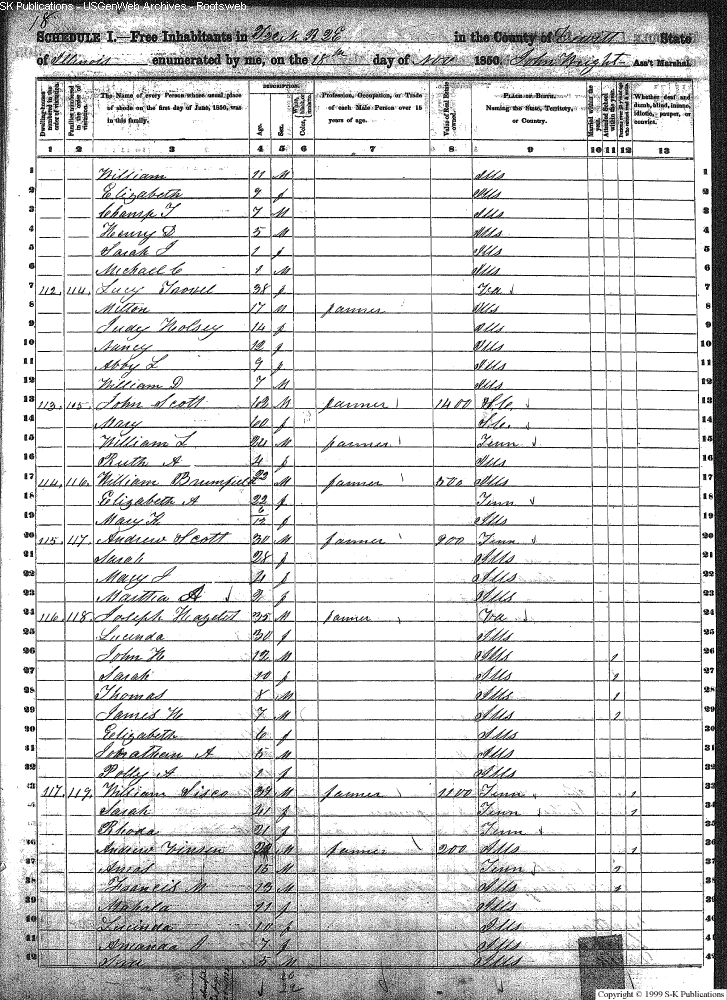 SK Publications - USGenWeb Archives - Rootsweb
18
SCHEDULE I.—Free Inhabitants in N. R 2E in the County of Dewitt State
of Illinois enumerated by me, on the 18th day of Nov 1850. John Wright Ass't Marshal.
DESCRIPTION.
Dwelling-houses numbered in the order of visitation. Families numbered in the order of visitation. The Name of every Person whose usual place of abode on the first day of June, 1850, was in this family. Age. Sex. Color, Profession, Occupation, or Trade of each Male Person over 15 years of age. Value of Real Estate owned. PLACE OF BIRTH. Naming the State, Territory, or Country. Married within the year. Attended School within the year. Whether deaf and dumb, blind, insane, idiotic, pauper, or convict.
1 2 3 4 5 6 7 8 9 10 11 12 13
1 William 11 M Ills
2 Elizabeth 9 f Ills
3 Champ T 7 M Ills
4 Henry D 5 M Ills
5 Sarah J 1 f Ills
6 Michael C 1 M Ills
7 112 114 Lucy 38 f Va
8 Milton 17 M farmer Ills
9 Judy Holsey 14 f Ills
10 Nancy 12 f Ills
11 Abby L 9 f Ills
12 William D 7 M Ills
13 113 115 John Scott 62 M farmer 1400 S.C.
14 Mary 60 f S.C.
15 William L 24 M farmer Tenn
16 Ruth A 4 f Ills
17 114 116 William Brumfield 22 M farmer 500 Ills
18 Elizabeth A 22 f Tenn
19 Mary 6/12 f Ills
20 115 117 Andrew Scott 30 M farmer 900 Tenn
21 Sarah 28 f Ills
22 Mary J 4 f Ills
23 Martha A 2 f Ills
24 116 118 Joseph 35 M farmer Va
25 Lucinda 30 f Ills
26 John H 12 M Ills 1
27 Sarah 10 f Ills 1
28 Thomas 8 M Ills 1
29 James H 7 M Ills 1
30 Elizabeth 6 f Ills
31 Jonathan A 5 M Ills
32 Polly A 1 f Ills
33 117 119 William Sisco 39 M farmer 1100 Tenn 1
34 Sarah 41 f Tenn 1
35 Rhoda 21 f Tenn
36 Andrew Vinson M farmer 200 Ills 1
37 Amos 15 M Tenn 1
38 Francis M 13 M Ills 1
39 Mahala 11 f Ills
40 Lucinda 10 f Ills
41 Amanda 7 f Ills
42 5 M Ills
Copyright © 1999 S-K Publications